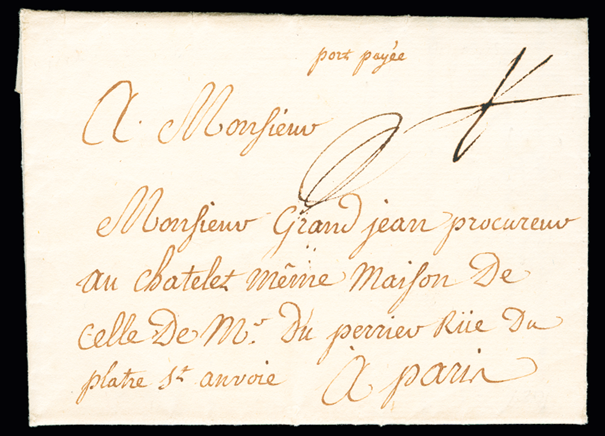 port payée
A. Monsieur
Monsieur Grand jean procureur
au chatelet même Maison De
celle De Mr. Du perrier Rüe Du
platre St. anvoie À paris